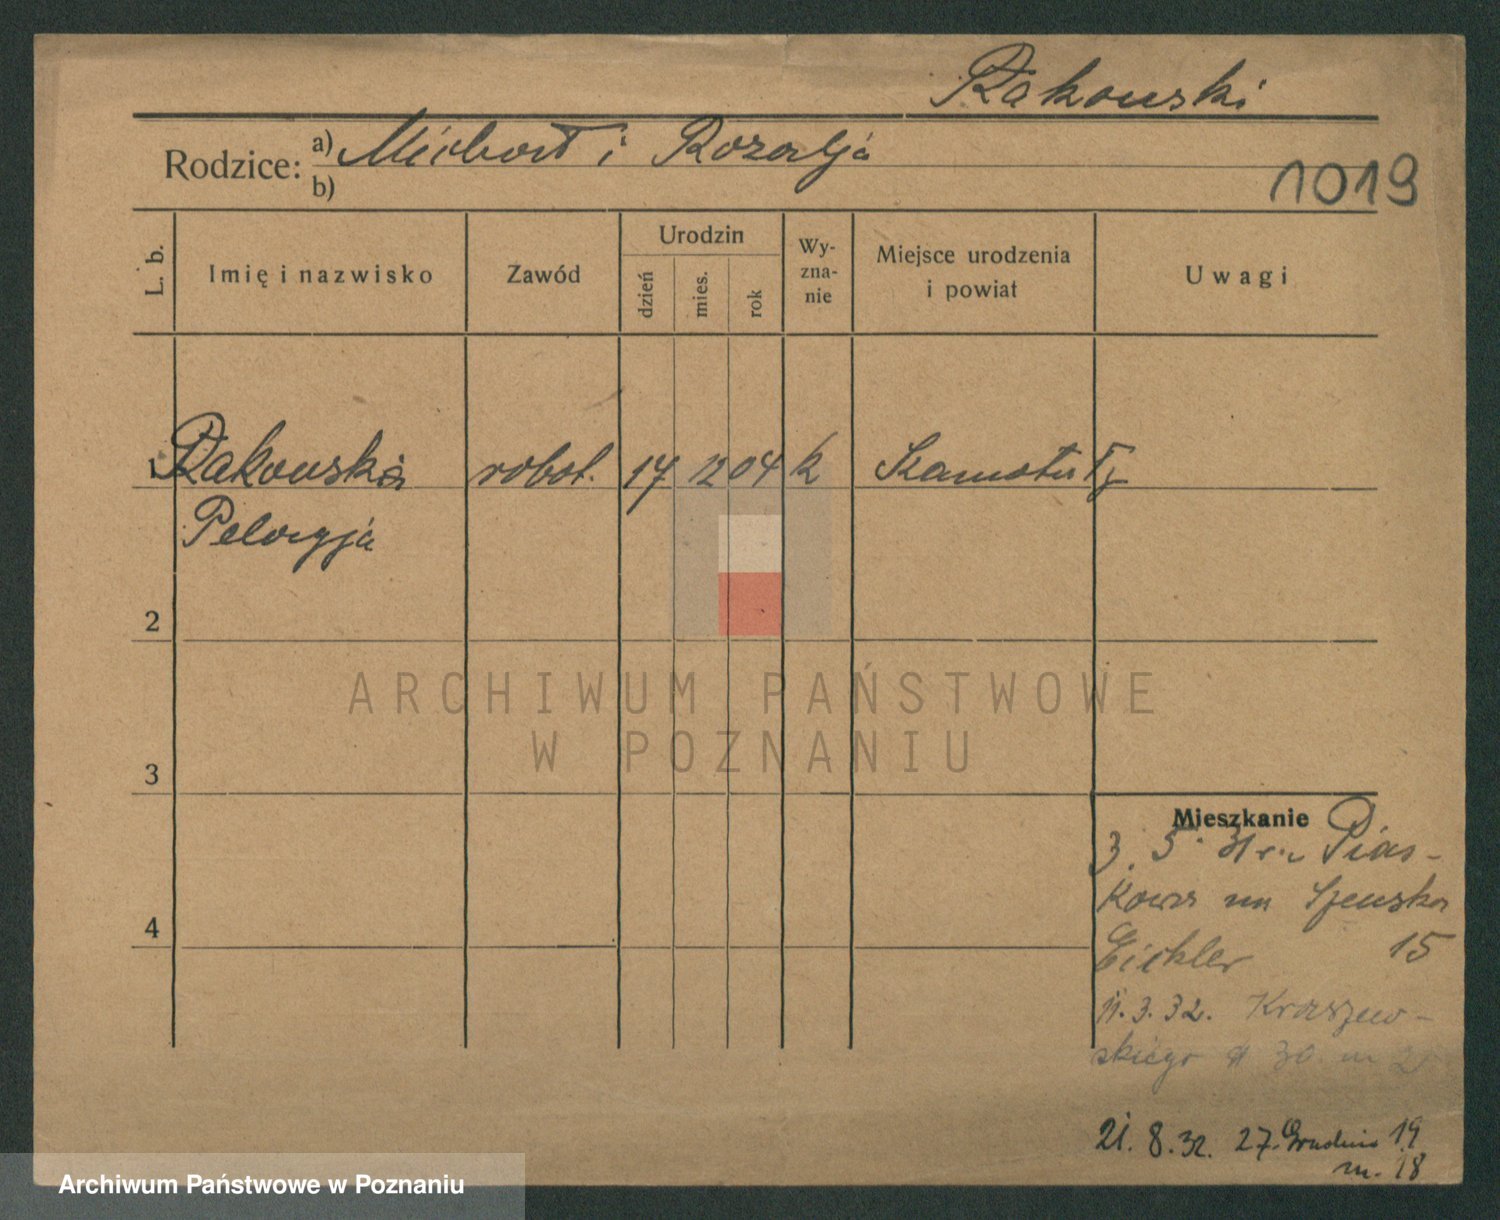 Rakowski
Rodzice: a) Michał i Rozalja
b)
1019
L. b.
Imię i nazwisko
Zawód
Urodzin
dzień
mies.
rok
Wy-
zna-
nie
Miejsce urodzenia
i powiat
Uwagi
1 Rakowska robot. 17 12 04 k Szamotuły
Pelagja
2
3
4
ARCHIWUM PAŃSTWOWE
W POZNANIU
Mieszkanie
3. 5. 31 r. Pias-
kowa
Eichler 15
11. 3. 32. Kraszew-
skiego 30 m 2
21. 8. 32. 27. Grudnia 19
m. 18
Archiwum Państwowe w Poznaniu